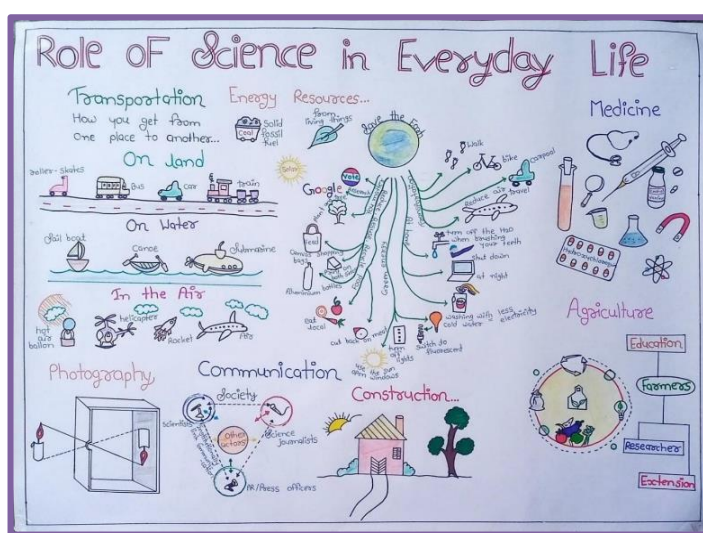 Role of Science in Everyday Life
Transportation
How you get from
one place to another...
On land
roller-skates
Bus
car
train
On Water
Sail boat
Canoe
Submarine
In the Air
hot
air
ballon
helicopter
Rocket
Energy Resources...
Coal
Solid
fossil
fuel
from
living things
Solar
Save the Earth
Vote
Google
local
Canvas shopping
bags
Aluminium bottles
eat
local
cut back on meat
use the sun
open windows
turn
off
lights
switch to
fluorescent
Green energy
At home
Walk
Bike
Carpool
Reduce air
travel
turn off the H2O
when brushing
your teeth
Shut down
at night
washing with less
cold water electricity
Medicine
Agriculture
Education
Farmers
Researcher
Extension
Photography
Communication
Society
Scientists
Other
actors
Science
journalists
PR/Press officers
Construction...